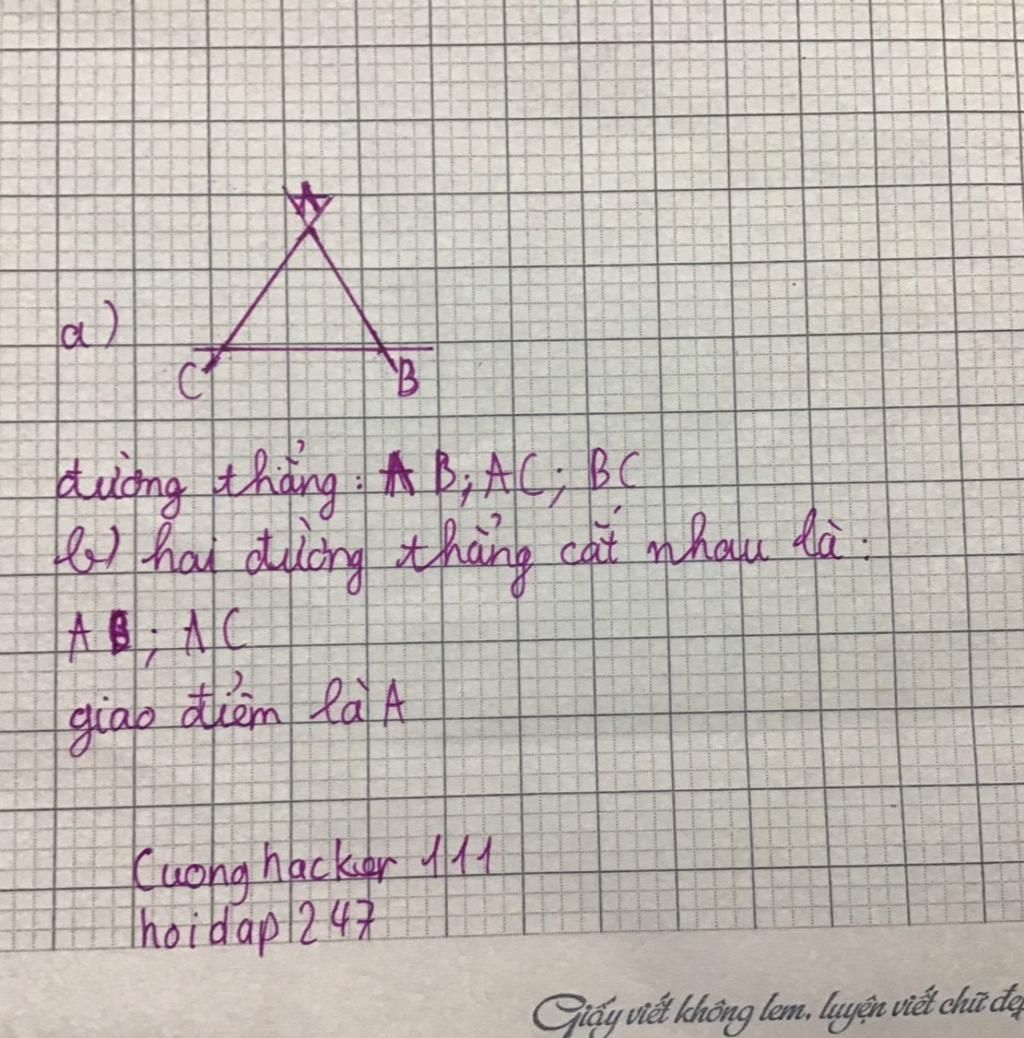 A
a)
C B
đường thẳng: AB; AC; BC
b) hai đường thẳng cắt nhau là:
AB; AC
giao điểm là A
Cuonghacker 111
hoidap 247
Giấy viết không lem, luyện viết chữ đẹp